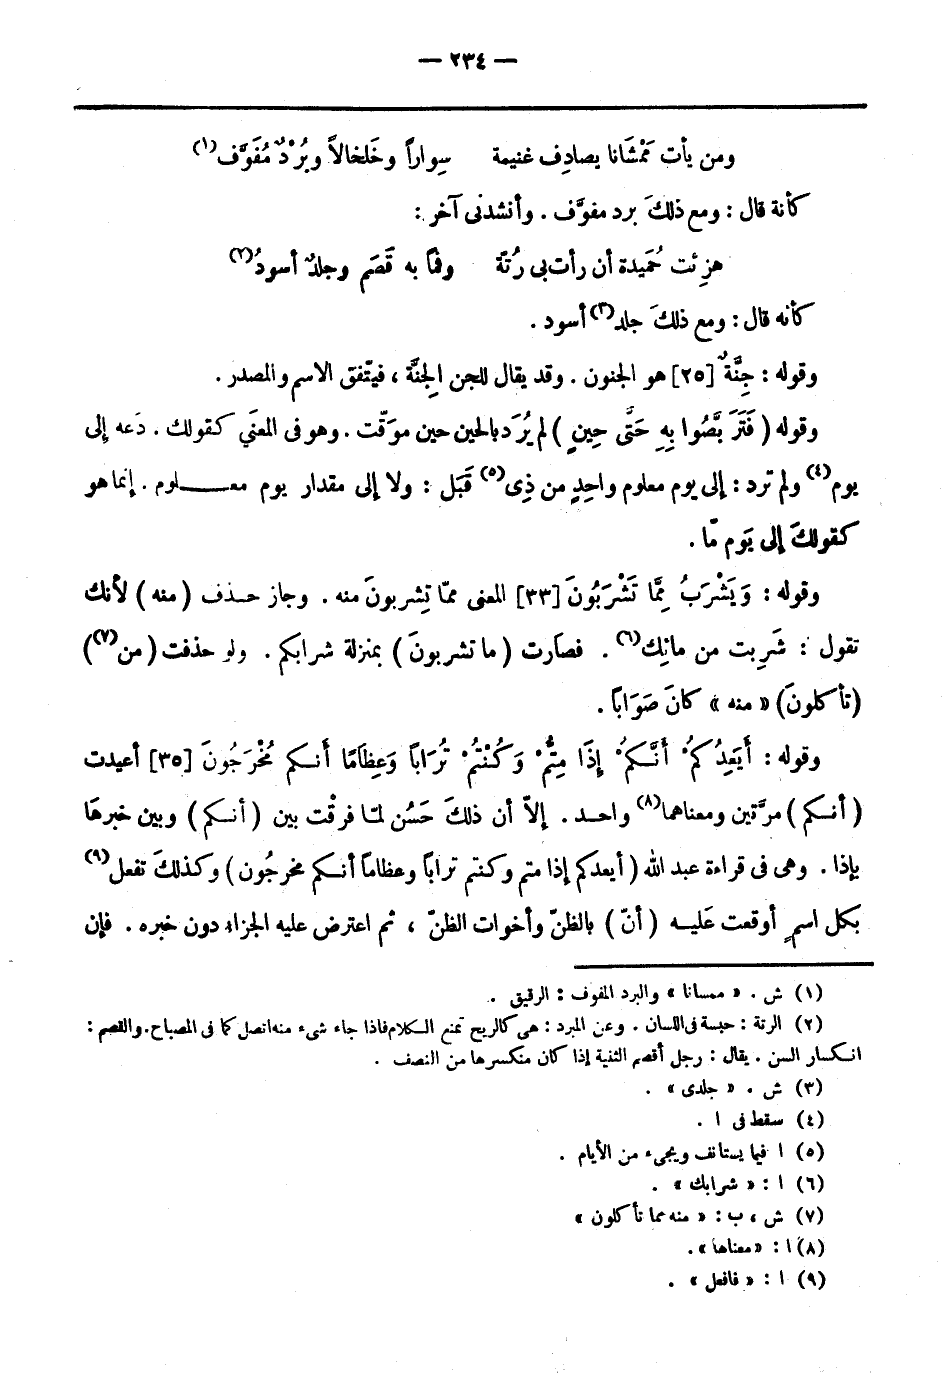 — ٢٣٤ —
ومن يأت مَمْشَانا يصادِف غنيمة سِواراً وخَلخالاً وبُرْدٌ مُفَوَّف(١)
كأنة قال : ومع ذلكَ برد مفوَّف . وأنشدنى آخر :
هزِئت حُمَيدة أن رأت بى رُتَّة وفماً به قَصَم وجلدٌ أسودُ(٢)
كأنه قال : ومع ذلكَ جلد(٣) أسود .
وقوله : جِنَّةٌ [٢٥] هو الجنون . وقد يقال للجن الجِنَّة ، فيتّفق الاسم والمصدر .
وقوله ( فَتَرَبَّصُوا بِهِ حَتَّى حِينٍ ) لم يُرَد بالحين حين موَقّت . وهو فى المعنَى كقولك . دَعه إلى
يوم(٤) ولم ترد : إلى يوم معلوم واحِدٍ من ذِى(٥) قَبَل : ولا إلى مقدار يوم معــلوم . إنما هو
كقولكَ إلى يَوم مّا .
وقوله : وَيَشْرَبُ مِمَّا تَشْرَبُونَ [٣٣] المعنى ممّا تشربونَ منه . وجاز حذف ( منه ) لأنك
تقول : شَرِبت من مائك(٦) . فصَارت ( ما تشربونَ ) بمنزلة شرابكم . ولو حذفت ( من(٧) )
(تأكلونَ) « منه » كانَ صَوَاباً .
وقوله : أَيَعِدُكُمْ أَنَّكُمْ إِذَا مِتُّمْ وَكُنْتُمْ تُرَاباً وَعِظَامًا أَنــكم مُخْرَجُونَ [٣٥] أعيدت
( أنــكم ) مرَّتين ومعناهما(٨) واحد . إلاّ أن ذلكَ حَسُن لمّا فرقْت بين ( أنــكم ) وبين خبرهَا
بإذا . وهى فى قراءة عبد الله ( أيعدكم إذا متم وكنتم تراباً وعظاماً أنــكم مخرجُون ) وكذلكَ تفعل(٩)
بكل اسمٍ أوقعت عَليــه ( أنّ ) بالظنّ وأخوات الظنّ ، ثم اعترض عليه الجزاء دون خبره . فإن
(١) ش . « ممسانا » والبرد المفوف : الرقيق .
(٢) الرتة : حبسة فى اللسان . وعن المبرد : هى كالريح تمنع الــكلام فاذا جاء شىء منه اتصل كما فى المصباح. والقصم :
انــكسار السن . يقال : رجل أقصم الثنية إذا كان منكسرها من النصف .
(٣) ش . « جلدى » .
(٤) سقط فى ا .
(٥) ا فيما يستانف ويجىء من الأيام .
(٦) ا : « شرابك » .
(٧) ش ، ب : « منه مما تأكلون »
(٨) ا : « معناها » .
(٩) ا : « فافعل » .